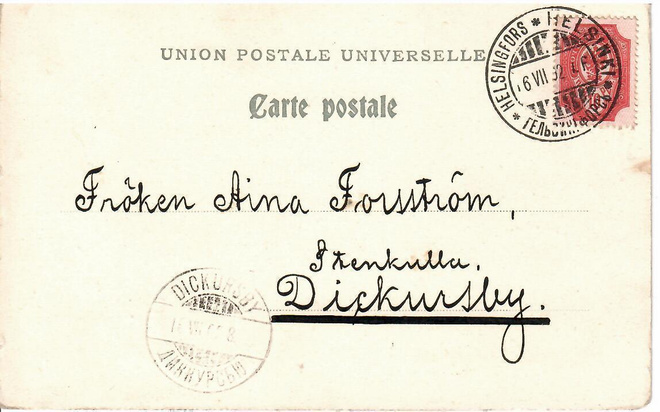 UNION POSTALE UNIVERSELLE
Carte postale
* HELSINGFORS * HELSINKI *
6 VII
ГЕЛЬСИНГФОРСЪ
Fröken Aina Forsström,
Stenkulla.
Dickursby.
DICKURSBY
VII
ДИККУРСБЮ